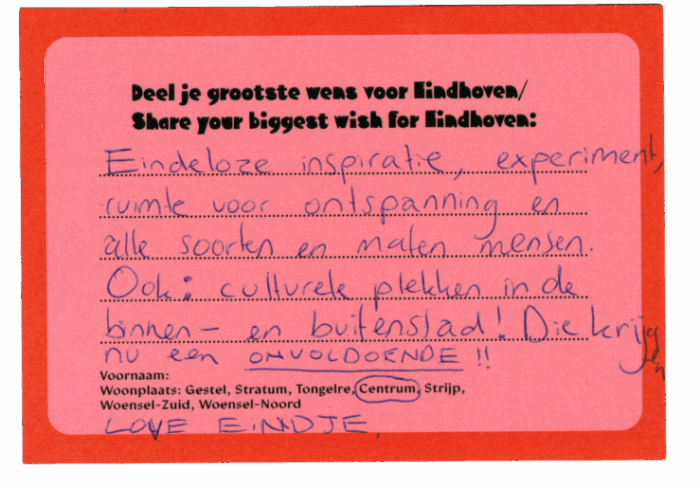 Deel je grootste wens voor Eindhoven/
Share your biggest wish for Eindhoven:
Eindeloze inspiratie, experiment,
ruimte voor ontspanning en
alle soorten en maten mensen.
Ook: culturele plekken in de
binnen- en buitenstad! Die krijgen
nu een ONVOLDOENDE !!
Voornaam:
Woonplaats: Gestel, Stratum, Tongelre, Centrum, Strijp,
Woensel-Zuid, Woensel-Noord
LOVE EINDJE,